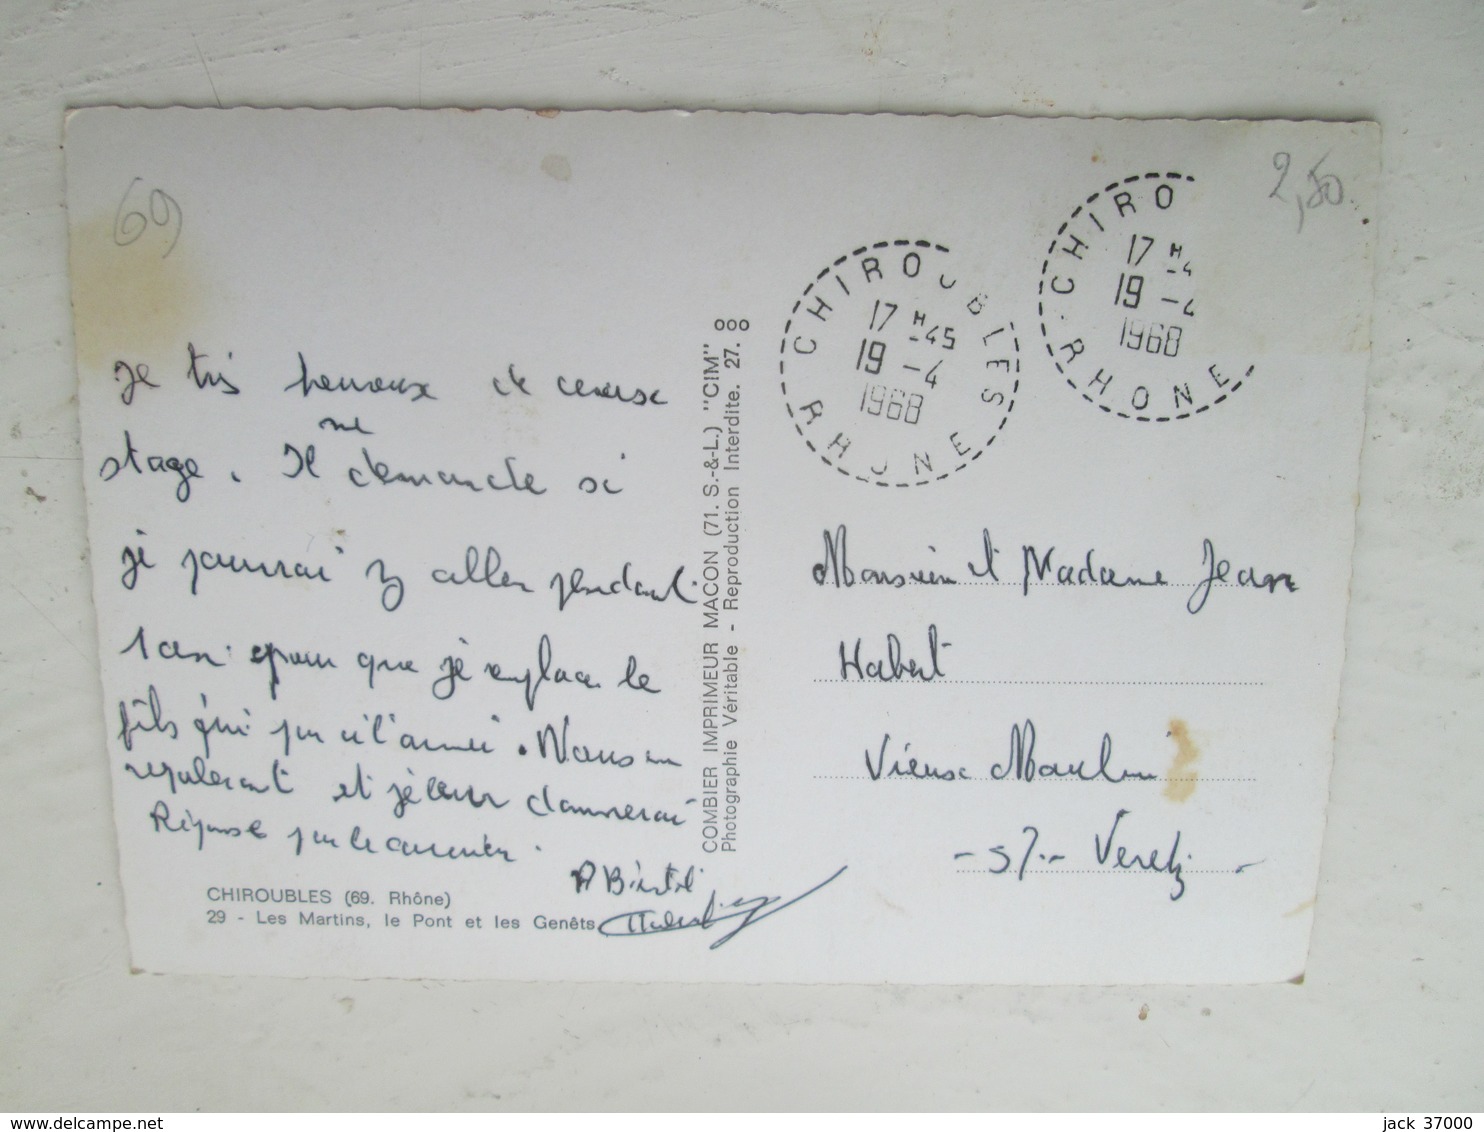 69
2,50
CHIROUBLES
17 H -45
19 -4
1968
RHONE
CHIRO
17 H -4
19 -4
1968
RHONE
Je très heureux de ce
me
stage. Il demande si
je pourrai y aller pendant
1 an pour que je remplace le
fils qui par à l'armée. Nous en
reparleront et je leur donnerai
Réponse par le courrier.
A Bientôt
Monsieur et Madame Jean
Habert
Vieux Moulin
- 37 - Veretz -
COMBIER IMPRIMEUR MACON (71. S.-&-L.) "CIM"
Photographie Véritable - Reproduction Interdite. 27. ooo
CHIROUBLES (69. Rhône)
29 - Les Martins, le Pont et les Genêts
www.delcampe.net
jack 37000